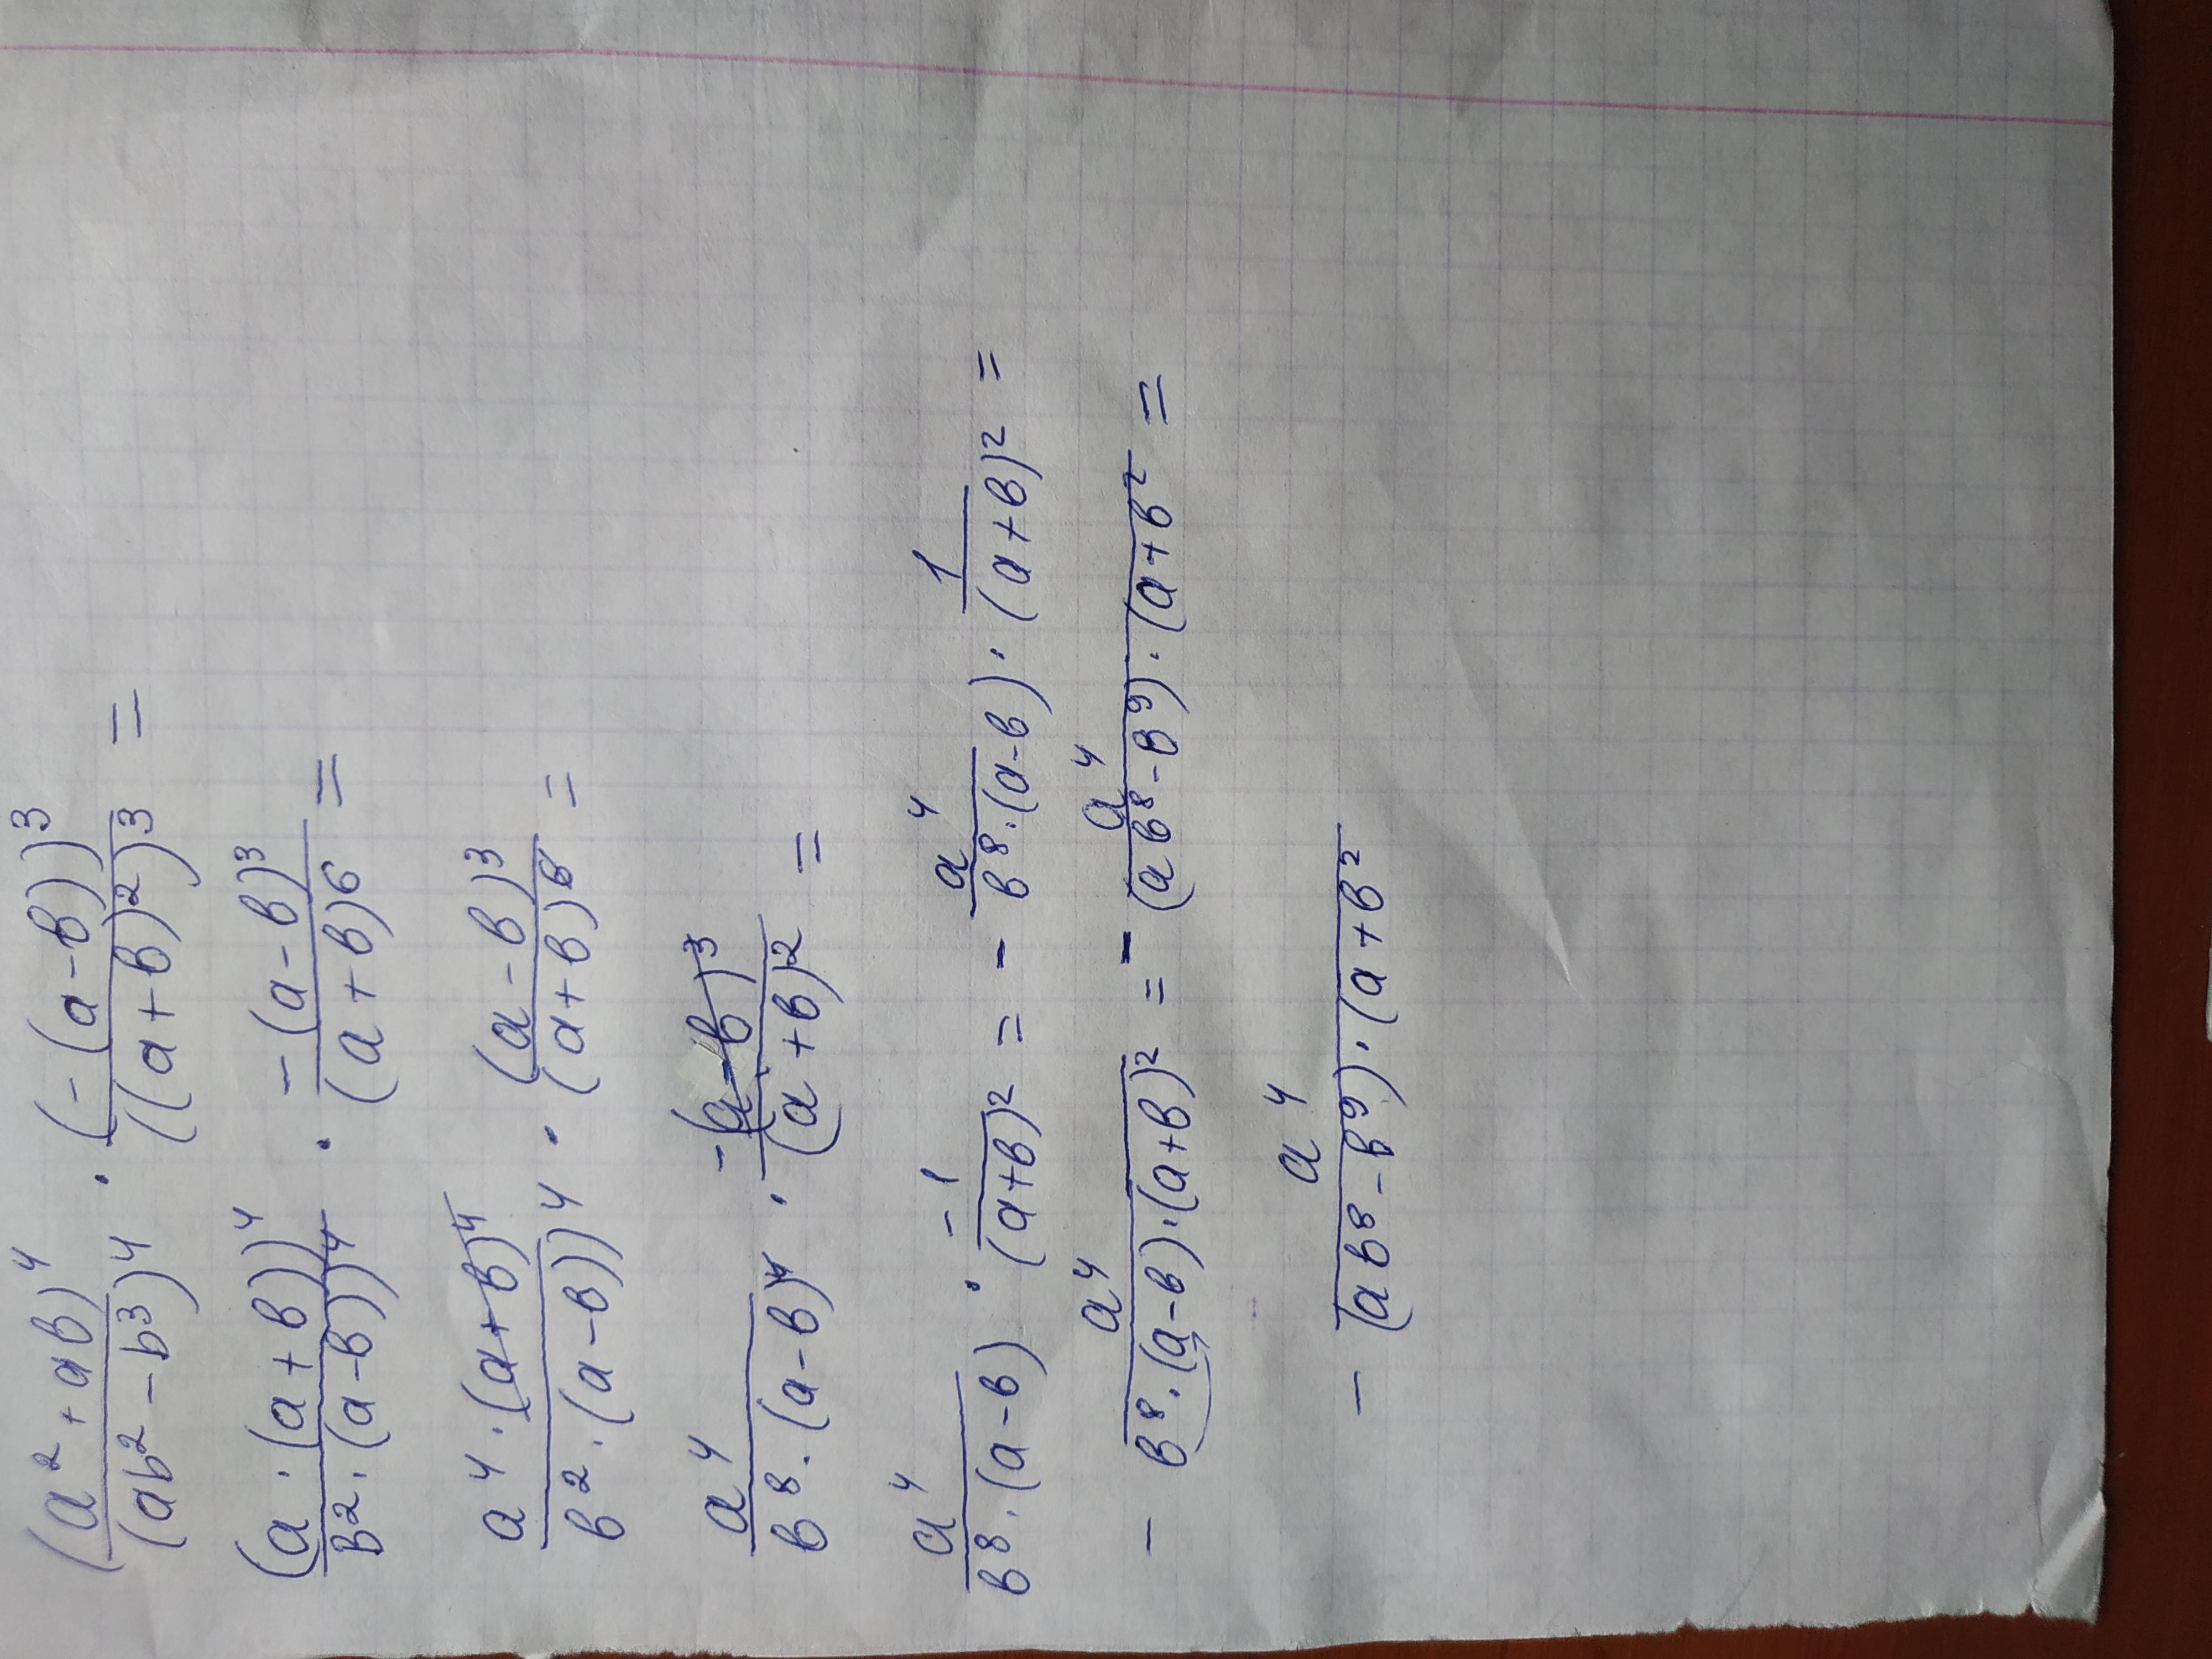 (a² + ab)⁴/(ab² - b³)⁴ · (-(a-b))³/((a+b)²)³ =
(a·(a+b))⁴/(b²·(a-b))⁴ · -(a-b)³/(a+b)⁶ =
a⁴·(a+b)⁴/b²·(a-b))⁴ · (a-b)³/(a+b)⁶ =
a⁴/b⁸·(a-b)⁴ · -(a-b)³/(a+b)² =
a⁴/b⁸·(a-b) · -1/(a+b)² = - a⁴/b⁸·(a-b) · 1/(a+b)² =
- a⁴/b⁸·(a-b)·(a+b)² = - a⁴/(ab⁸-b⁹)·(a+b² =
- a⁴/(ab⁸-b⁹)·(a+b²